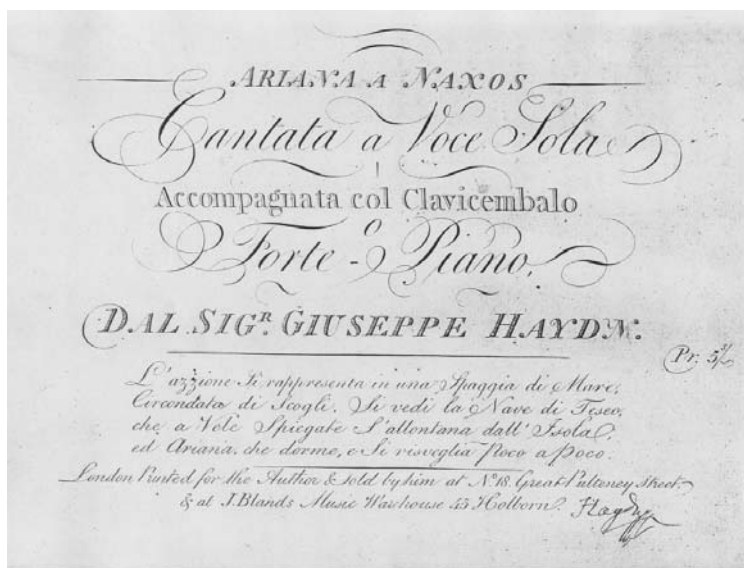 ARIANA A NAXOS
Cantata a Voce Sola
Accompagnata col Clavicembalo
o
Forte-Piano,
DAL SIGR. GIUSEPPE HAYDN.
Pr: 5s/
L'azzione si rappresenta in una Spaggia di Mare,
Circondata di Scogli. Si vedi la Nave di Teseo,
che a Vele Spiegate s'allontana dall' Isola,
ed Ariana, che dorme, e Si risveglia Poco a poco.
London Printed for the Author & sold by him at No. 18. Great Pulteney Street,
& at J. Blands Music Warehouse 45 Holborn.
Haydn